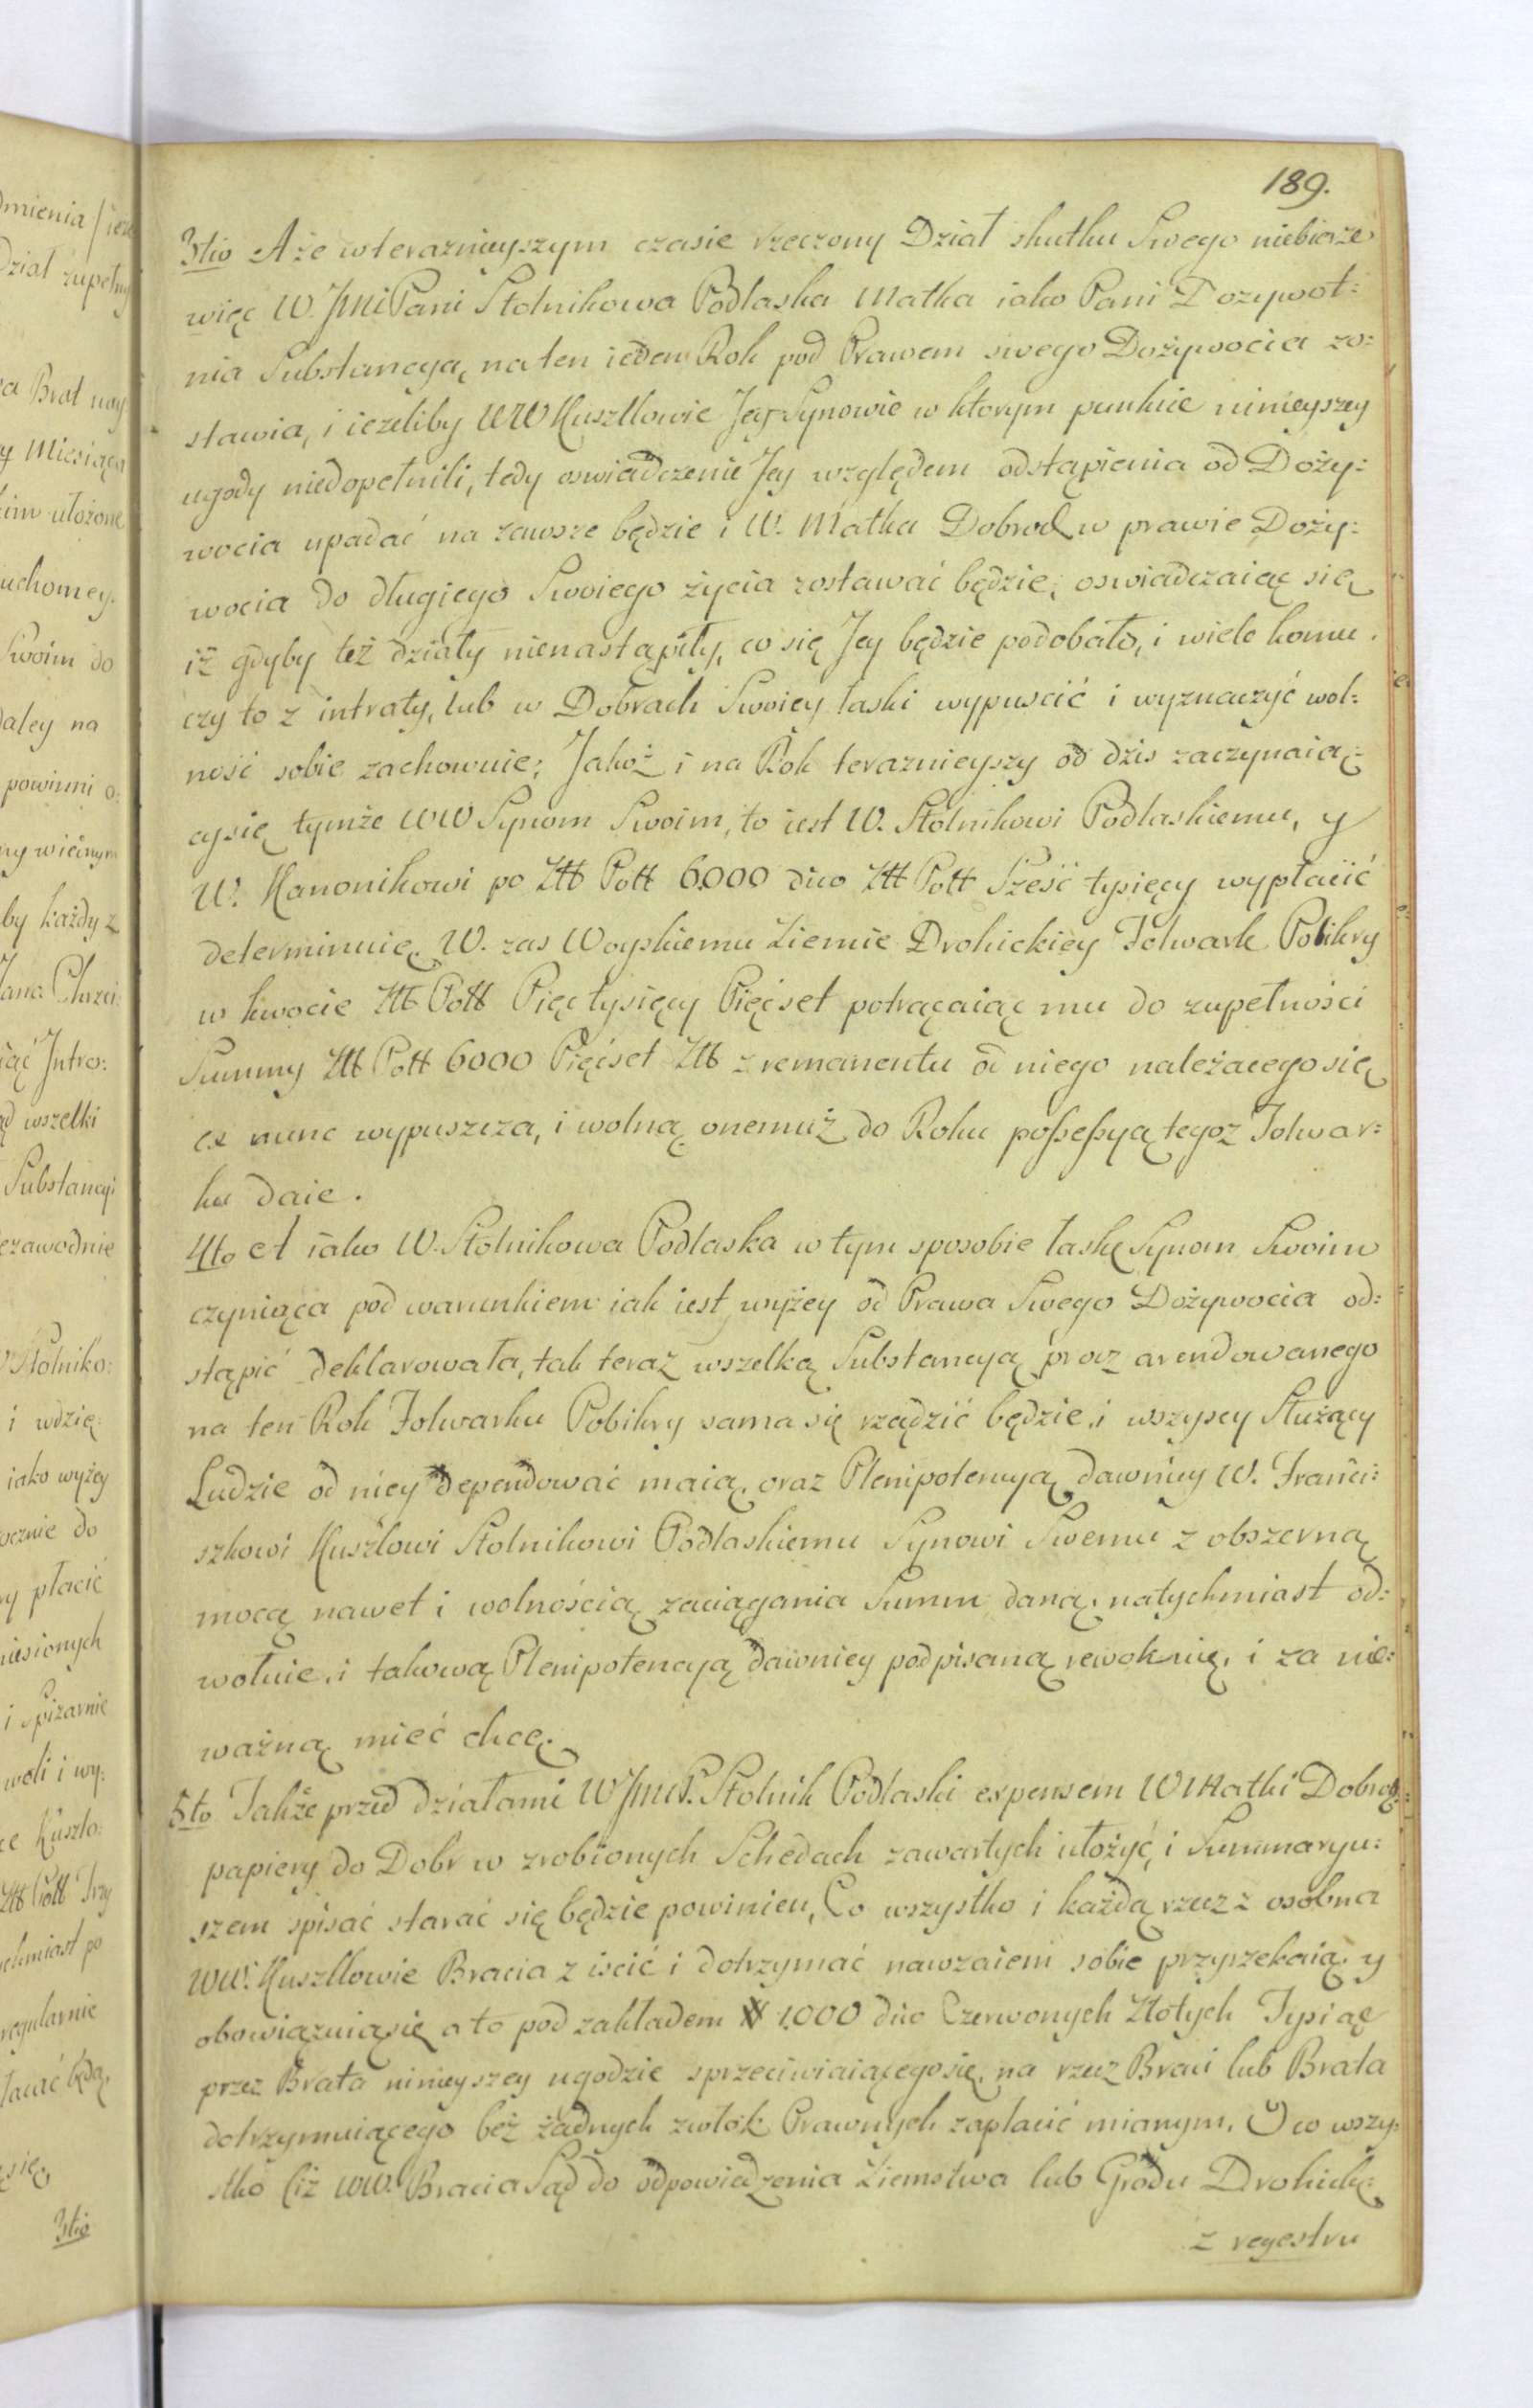 189.
3tio A że w teraznieyszym czasie rzeczony Dział skutku Swego niebierze
więc W. JMć Pani Stolnikowa Podlaska Matka iako Pani Dozywot:
nia Substancyą, na ten ieden Rok pod Prawem swego Dożywocia zo:
stawia, i iezeliby WW Kuszllowie Jey Synowie w ktorym punkcie ninieyszey
ugody niedopełnili, tedy oswiadczenie Jey względem odstąpienia od Doży:
wocia upadać na zawsze będzie i W. Matka Dobrod. w prawie Doży:
wocia do długiego Swoiego życia zostawać będzie, oswiadczaiąc się
iż gdyby też działy nienastąpiły, co się Jey będzie podobało, i wiele komu
czy to z intraty, lub w Dobrach Swoiey łaski wypuscić i wyznaczyć wol:
ność sobie zachowuie; Jakoż i na Rok teraznieyszy od dzis zaczynaią:
cy się tymże WW Synom Swoim, to iest W. Stolnikowi Podlaskiemu, y
W. Kanonikowi po Ztt Poll 6000 dico Ztt Poll Sześć tysięcy wypłacić
determinuie. W. zas Woyskiemu Ziemie Drohickiey Folwark Pobikry
w kwocie Ztt Poll Pięć tysięcy Pięćset potrącaiąc mu do zupełności
Summy Ztt Poll 6000 Pięćset Ztt z remanentu od niego należacego się
ex nunc wypuszcza, i wolną onemuż do Roku possessyą tegoz Folwar:
ku daie.
4to A iako W. Stolnikowa Podlaska w tym sposobie łaskę Synom Swoim
czyniąca pod warunkiem iak iest wyżey od Prawa Swego Dożywocia od:
stąpić deklarowała, tak teraz wszelką Substancyą procz arendowanego
na ten Rok Folwarku Pobikry sama się rządzić będzie, i wszyscy Służący
Ludzie od niey dependować maią, oraz Plenipotencyą dawniey W. Franci:
szkowi Kuszlowi Stolnikowi Podlaskiemu Synowi Swemu z obszerną
mocą nawet i wolnością zaciągania Summ daną, natychmiast od:
wołuie, i takową Plenipotencyą dawniey podpisaną rewokuię, i za nie:
ważną mieć chcę.
5to Także przed działami W JMć P. Stolnik Podlaski expensem W Matki Dobrod:
papiery do Dobr w zrobionych Schedach zawartych ułożyć, i Summaryu:
szem spisać starać się będzie powinien, Co wszystko i każdą rzecz z osobna
WW. Kuszllowie Bracia z iscić i dotrzymać nawzaiem sobie przyrzekaią, y
obowiązuią się a to pod zakładem 1.000 dico Czerwonych Złotych Tysiąc
przez Brata ninieyszey ugodzie sprzeciwiaiącego się, na rzecz Braci lub Brata
dotrzymuiącego beż żadnych zwłok Prawnych zapłacić mianym, O co wszy:
stko ciż WW. Bracia Sąd do odpowiedzenia Ziemstwa lub Grodu Drohick:
z regestru
dmienia
Dział zupełny
Brat nay
Miesiąca
ułożone
uchomey.
Swoim do
daley na
powinni o:
by każdy z
Jana Chrzci:
Intro:
wszelki
Substancyi
ezawodnie
Stolniko:
i wdzię:
iako wyżey
ocznie do
płacić
niesionych
i Spizarnie
woli i wy:
Kuszlo:
Ztt Poll Trzy
chmiast po
regularnie
się,
3tio